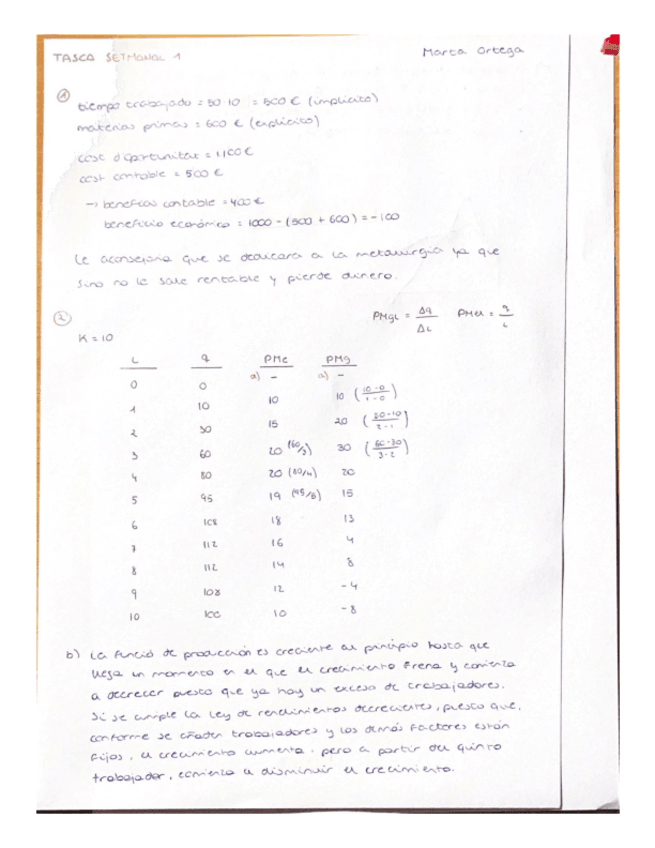 TASCA SETMANAL 1
Marta Ortega
1
tiempo trabajado = 50·10 = 500 € (implícito)
materias primas = 600 € (explícito)
cost d'oportunitat = 1,100 €
cost contable = 500 €
→ beneficios contable = 400 €
beneficio económico = 1000 - (500 + 600) = -100
Le aconsejaria que se dedicara a la metalurgia ya que
sino no le sale rentable y pierde dinero.
2
PMgL = Δq/ΔL PMeL = q/L
K = 10
L q PMe PMg
0 0 a) - a) -
1 10 10 10 (10-0/1-0)
2 30 15 20 (30-10/2-1)
3 60 20 (60/3) 30 (60-30/3-2)
4 80 20 (80/4) 20
5 95 19 (95/5) 15
6 108 18 13
7 112 16 4
8 112 14
9 108 12 -4
10 100 10 -8
b) La funció de producción es creciente al principio hasta que
llega un momento en el que el crecimiento frena y comienza
a decrecer puesto que ya hay un exceso de trabajadores.
Si se cumple la ley de rendimientos decrecientes, puesto que,
conforme se añaden trabajadores y los demás factores están
fijos, el crecimiento aumenta. pero a partir del quinto
trabajador, comienza a disminuir el crecimiento.